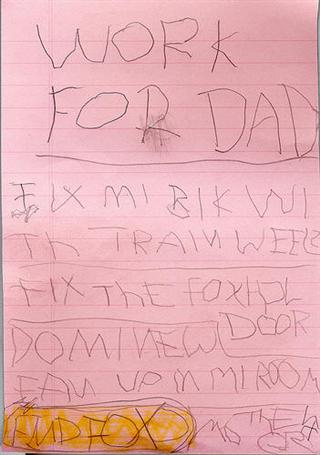 WORK
FOR DAD
FIX MI BIK WI
TH TRAIN WEELS
FIX THE FOXHOL
DOOR
DO MI NEW
FAN UP IN MI ROOM
FOX THE